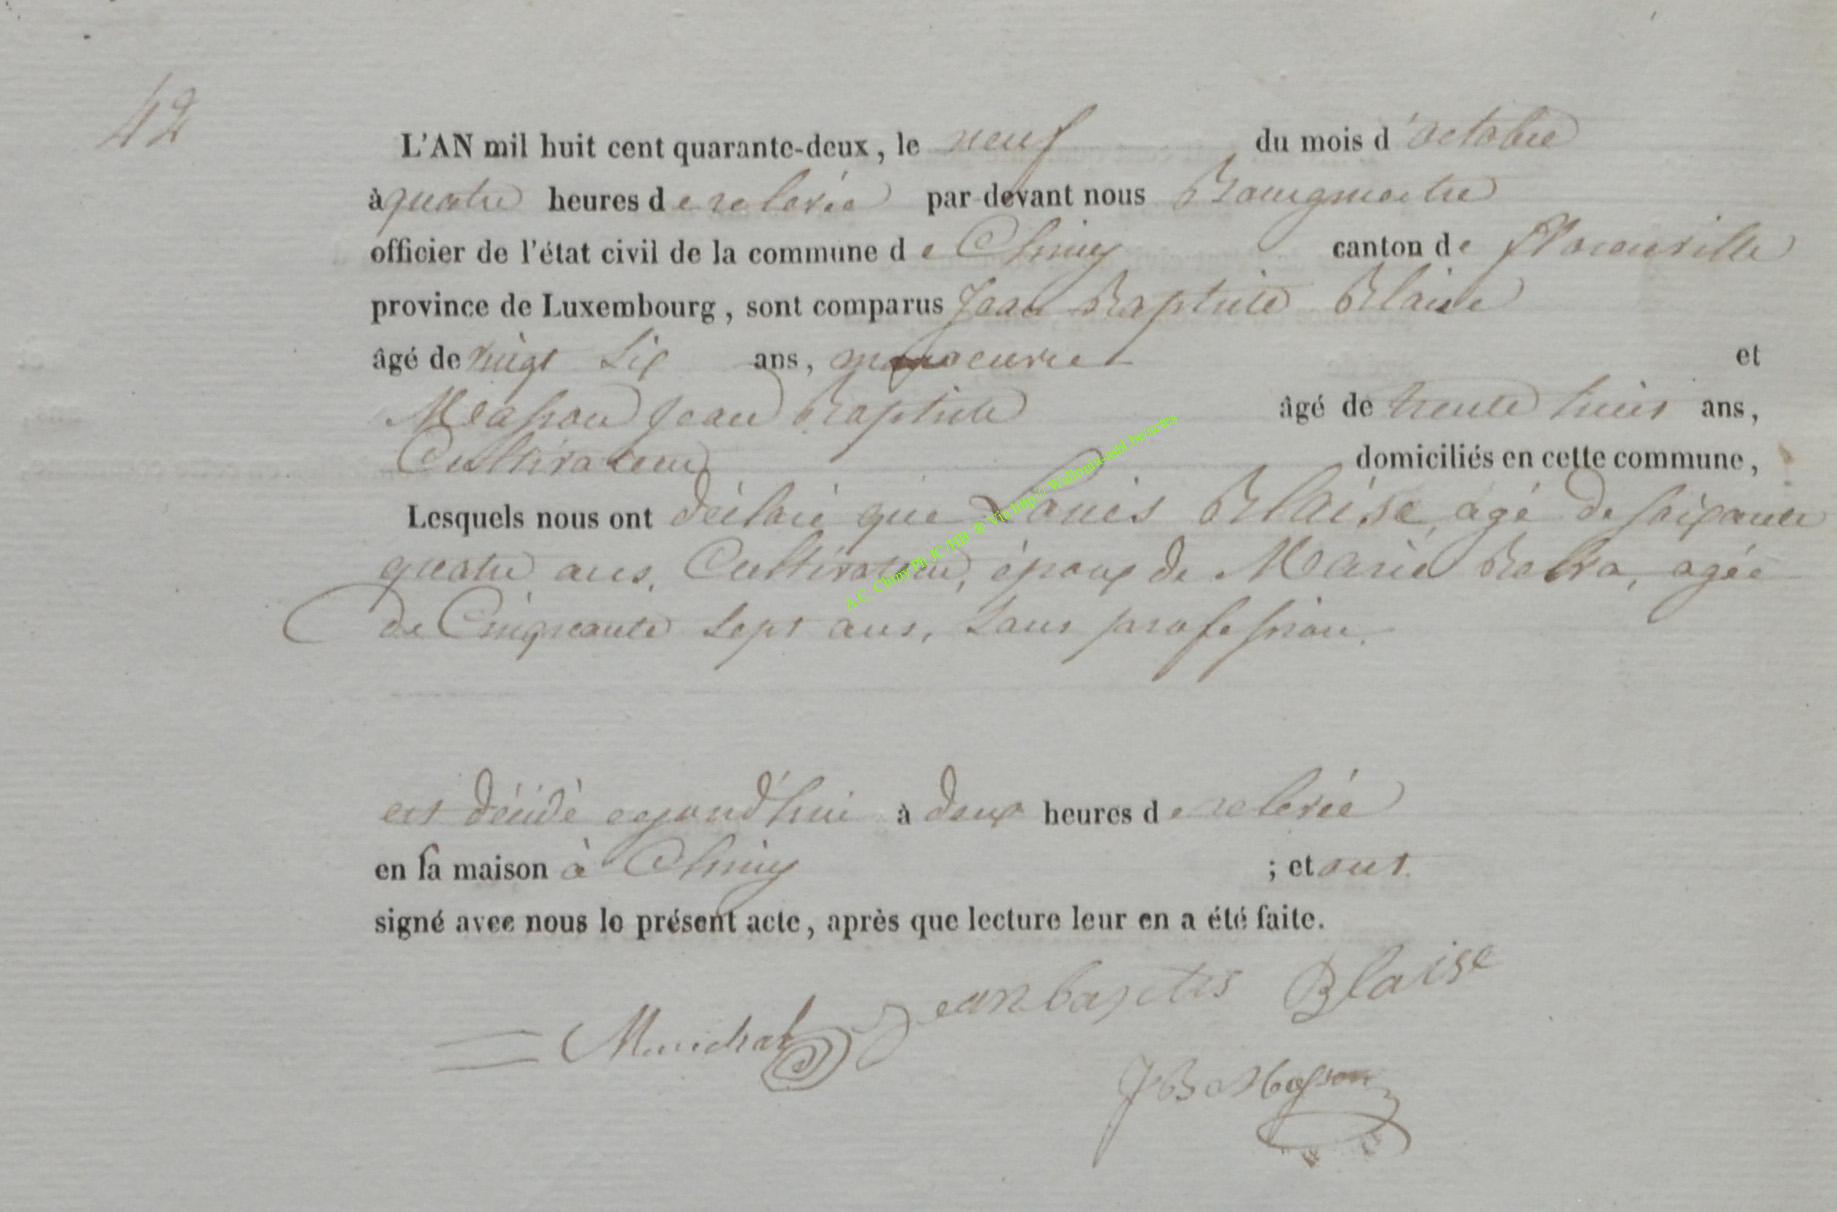 42
L'AN mil huit cent quarante-deux, le neuf du mois d'octobre
à quatre heures de relevée par devant nous Bourgmestre
officier de l'état civil de la commune de Chiny canton de florenville
province de Luxembourg, sont comparus Jean Baptiste Blaise
âgé de vingt six ans, manoeuvre et
Masson Jean Baptiste âgé de trente huit ans,
Cultivateur domiciliés en cette commune,
Lesquels nous ont déclaré que Louis Blaise, agé de soixante
quatre ans, Cultivateur, époux de Marie, agée
de Cinquante sept ans, sans profession.
est décédé aujourd'hui à deux heures de relevée
en sa maison à Chiny ; et ont
signé avec nous le présent acte, après que lecture leur en a été faite.
Jeanbaptis Blaise
JB Masson